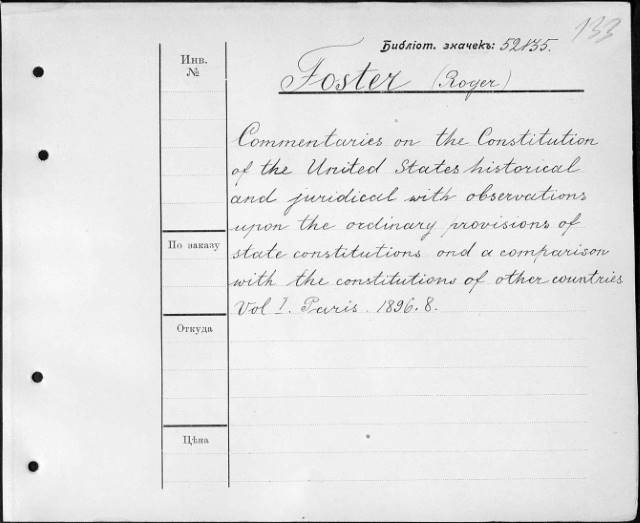 133
Библіот. значекъ: 52135.
Инв.
№
Foster (Roger)
Commentaries on the Constitution
of the United States historical
and juridical with observations
upon the ordinary provisions of
state constitutions and a comparison
with the constitutions of other countries
Vol I. Paris. 1896. 8.
По заказу
Откуда
Цѣна